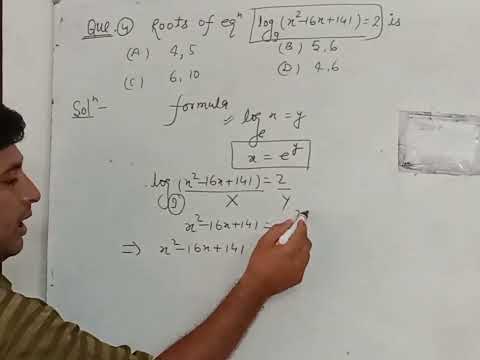 Que. 4 Roots of eqⁿ log₉(x²-16x+141)=2 is
(A) 4,5 (B) 5,6
(C) 6,10 (D) 4,6
Solⁿ- formula
logₑ x = y
x = e^y
log₉(x²-16x+141) = 2
X Y
x²-16x+141 =
⇒ x²-16x+141